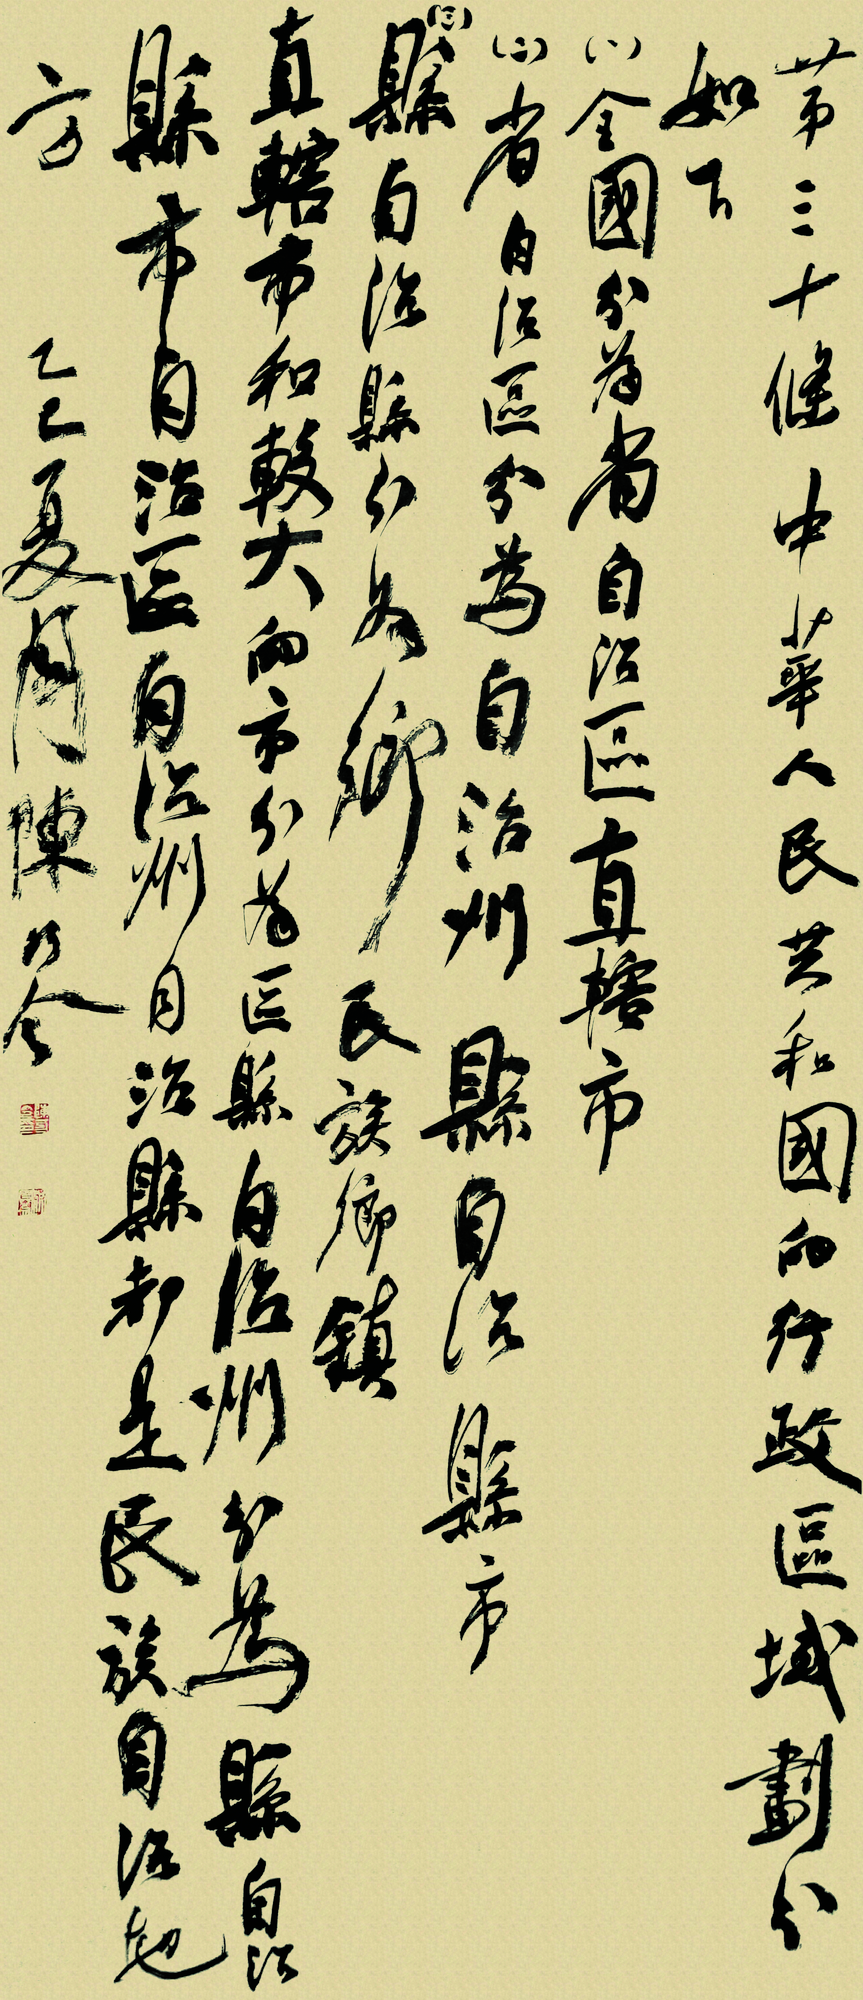 第三十條中華人民共和國的行政區域劃分
如下
(一)全國分為省自治區直轄市
(二)省自治區分為自治州縣自治縣市
(三)縣自治縣分為鄉民族鄉鎮
直轄市和較大的市分為區縣自治州分為縣自治
縣市自治區自治州自治縣都是民族自治地
方
乙巳夏月陳